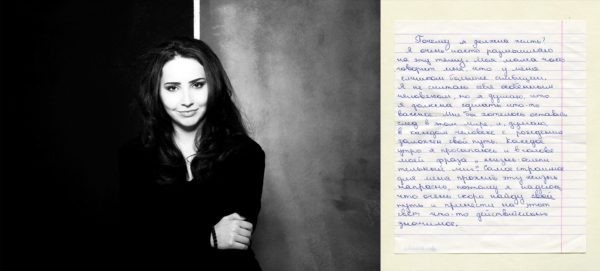 Почему я должна жить?
Я очень часто размышляю
на эту тему. Моя мама часто
говорит мне, что у меня
слишком большие амбиции.
Я не считаю себя особенным
человеком, но я думаю, что
я должна сделать что-то
важное. Мне бы хотелось оставить
след в этом мире, и, думаю,
в каждом человеке с рождения
заложен свой путь. Каждое
утро я просыпаюсь и в голове
моей фраза „жизнь-
миг“. Самое страшное
для меня прожить эту жизнь
напрасно, поэтому я надеюсь,
что очень скоро найду свой
путь и принести на этот
свет что-то действительно
значимое.